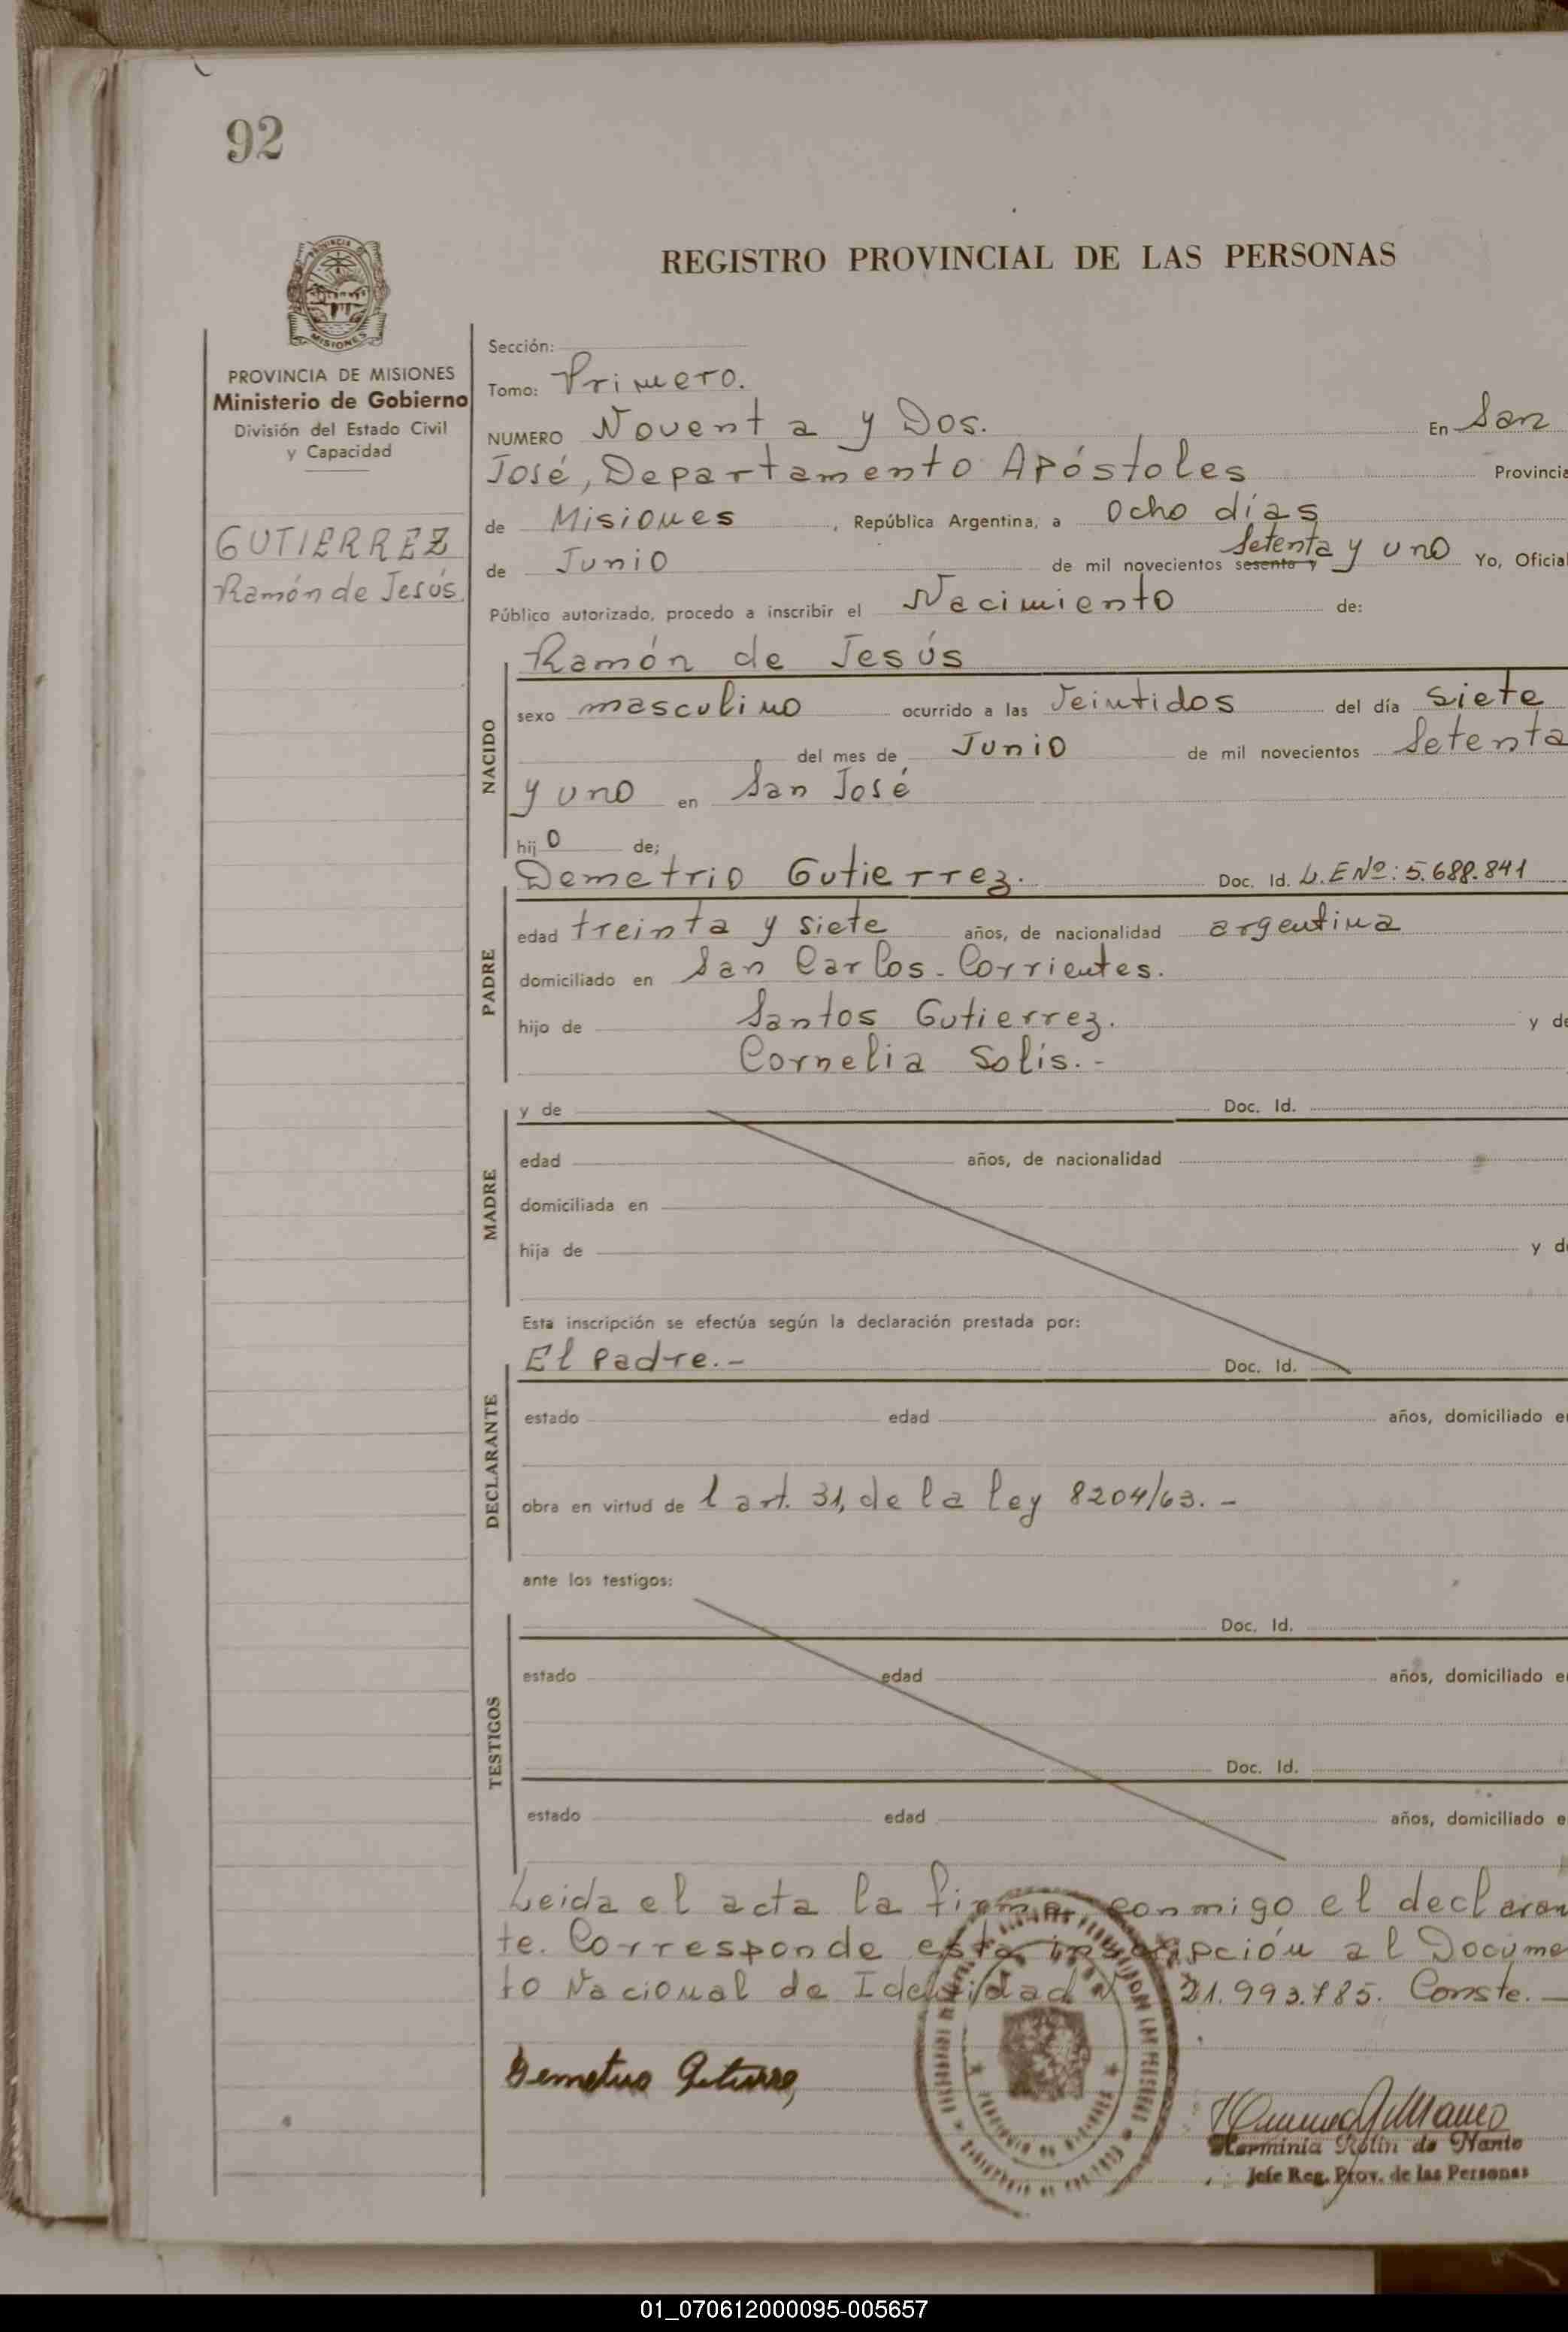 92
REGISTRO PROVINCIAL DE LAS PERSONAS
PROVINCIA DE MISIONES
Ministerio de Gobierno
División del Estado Civil
y Capacidad
GUTIERREZ
Ramón de Jesús.
Sección:
Tomo: Primero.
NUMERO Noventa y Dos. En San
José, Departamento Apóstoles Provincia
de Misiones, República Argentina, a Ocho días
de Junio de mil novecientos sesenta y Setenta y uno Yo, Oficial
Público autorizado, procedo a inscribir el Nacimiento de:
NACIDO
Ramón de Jesús
sexo masculino ocurrido a las Veintidos del día siete
del mes de Junio de mil novecientos Setenta
y uno en San José
hijo de;
PADRE
Demetrio Gutierrez. Doc. Id. L.E Nº: 5.688.841
edad treinta y siete años, de nacionalidad argentina
domiciliado en San Carlos - Corrientes.
hijo de Santos Gutierrez. y de
Cornelia Solis. -
MADRE
y de Doc. Id.
edad años, de nacionalidad
domiciliada en
hija de y de
Esta inscripción se efectúa según la declaración prestada por:
DECLARANTE
El Padre. - Doc. Id.
estado edad años, domiciliado en
obra en virtud de l art. 31, de la ley 8204/63. -
ante los testigos:
TESTIGOS
Doc. Id.
estado edad años, domiciliado en
Doc. Id.
estado edad años, domiciliado e
Leida el acta la firma, conmigo el declaran
te. Corresponde esta inscripción al Docume
to Nacional de Identidad 21.993.785. Conste. -
Demetrio Gutierrez
Herminia Rolin de Nanto
Jefe Reg. Prov. de las Personas
01_070612000095-005657